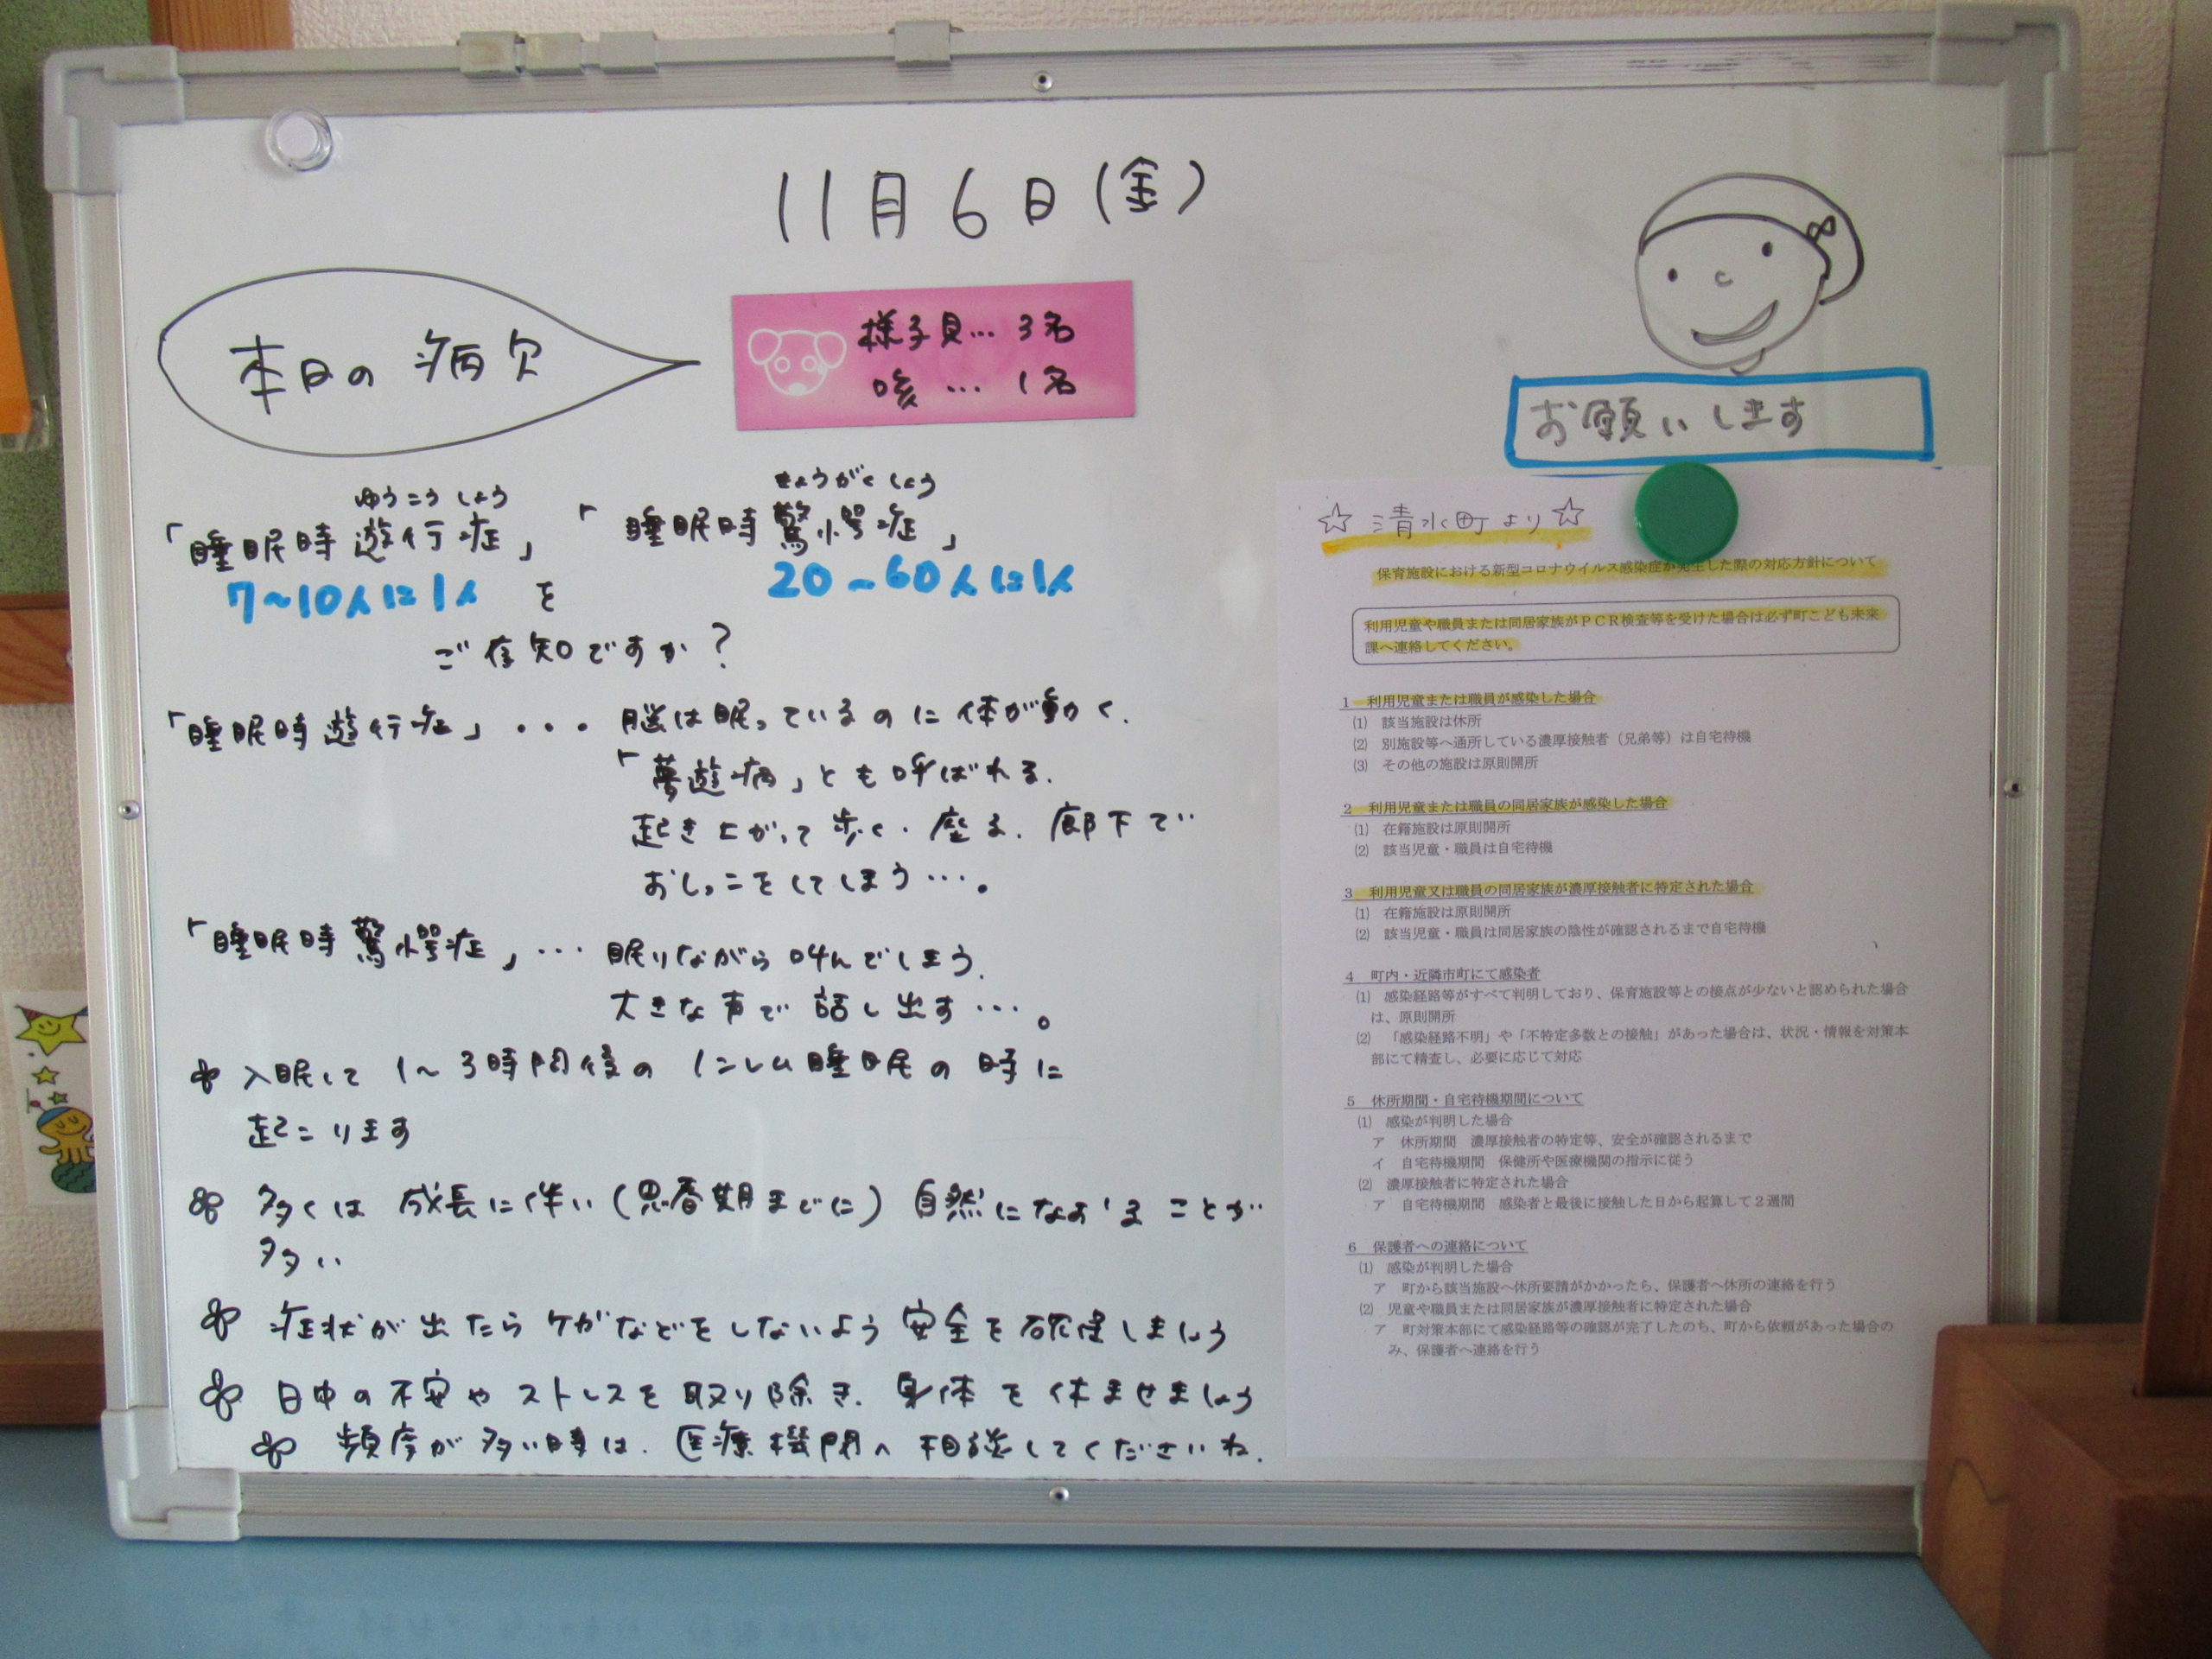 11月6日(金)
本日の病欠
様子見…3名
咳…1名
お願いします
ゆうこうしょう
きょうがくしょう
「睡眠時遊行症」「睡眠時驚愕症」
7~10人に1人 を 20~60人に1人
ご存知ですか?
「睡眠時遊行症」・・・脳は眠っているのに体が動く.
「夢遊病」とも呼ばれる.
起き上がって歩く・座る.廊下で
おしっこをしてしまう…。
「睡眠時驚愕症」…眠りながら叫んでしまう.
大きな声で話し出す…。
入眠して1~3時間後のノンレム睡眠の時に
起こります
多くは成長に伴い(思春期までに)自然になおることが
多い
症状が出たらケガなどをしないよう安全を確保しましょう
日中の不安やストレスを取り除き.身体を休ませましょう
頻度が多い時は.医療機関へ相談してくださいね.
☆清水町より☆
保育施設における新型コロナウイルス感染症が発生した際の対応方針について
利用児童や職員または同居家族がPCR検査等を受けた場合は必ず町こども未来
課へ連絡してください。
1 利用児童または職員が感染した場合
(1) 該当施設は休所
(2) 別施設等へ通所している濃厚接触者(兄弟等)は自宅待機
(3) その他の施設は原則開所
2 利用児童または職員の同居家族が感染した場合
(1) 在籍施設は原則開所
(2) 該当児童・職員は自宅待機
3 利用児童又は職員の同居家族が濃厚接触者に特定された場合
(1) 在籍施設は原則開所
(2) 該当児童・職員は同居家族の陰性が確認されるまで自宅待機
4 町内・近隣市町にて感染者
(1) 感染経路等がすべて判明しており、保育施設等との接点が少ないと認められた場合
は、原則開所
(2) 「感染経路不明」や「不特定多数との接触」があった場合は、状況・情報を対策本
部にて精査し、必要に応じて対応
5 休所期間・自宅待機期間について
(1) 感染が判明した場合
ア 休所期間 濃厚接触者の特定等、安全が確認されるまで
イ 自宅待機期間 保健所や医療機関の指示に従う
(2) 濃厚接触者に特定された場合
ア 自宅待機期間 感染者と最後に接触した日から起算して2週間
6 保護者への連絡について
(1) 感染が判明した場合
ア 町から該当施設へ休所要請がかかったら、保護者へ休所の連絡を行う
(2) 児童や職員または同居家族が濃厚接触者に特定された場合
ア 町対策本部にて感染経路等の確認が完了したのち、町から依頼があった場合の
み、保護者へ連絡を行う